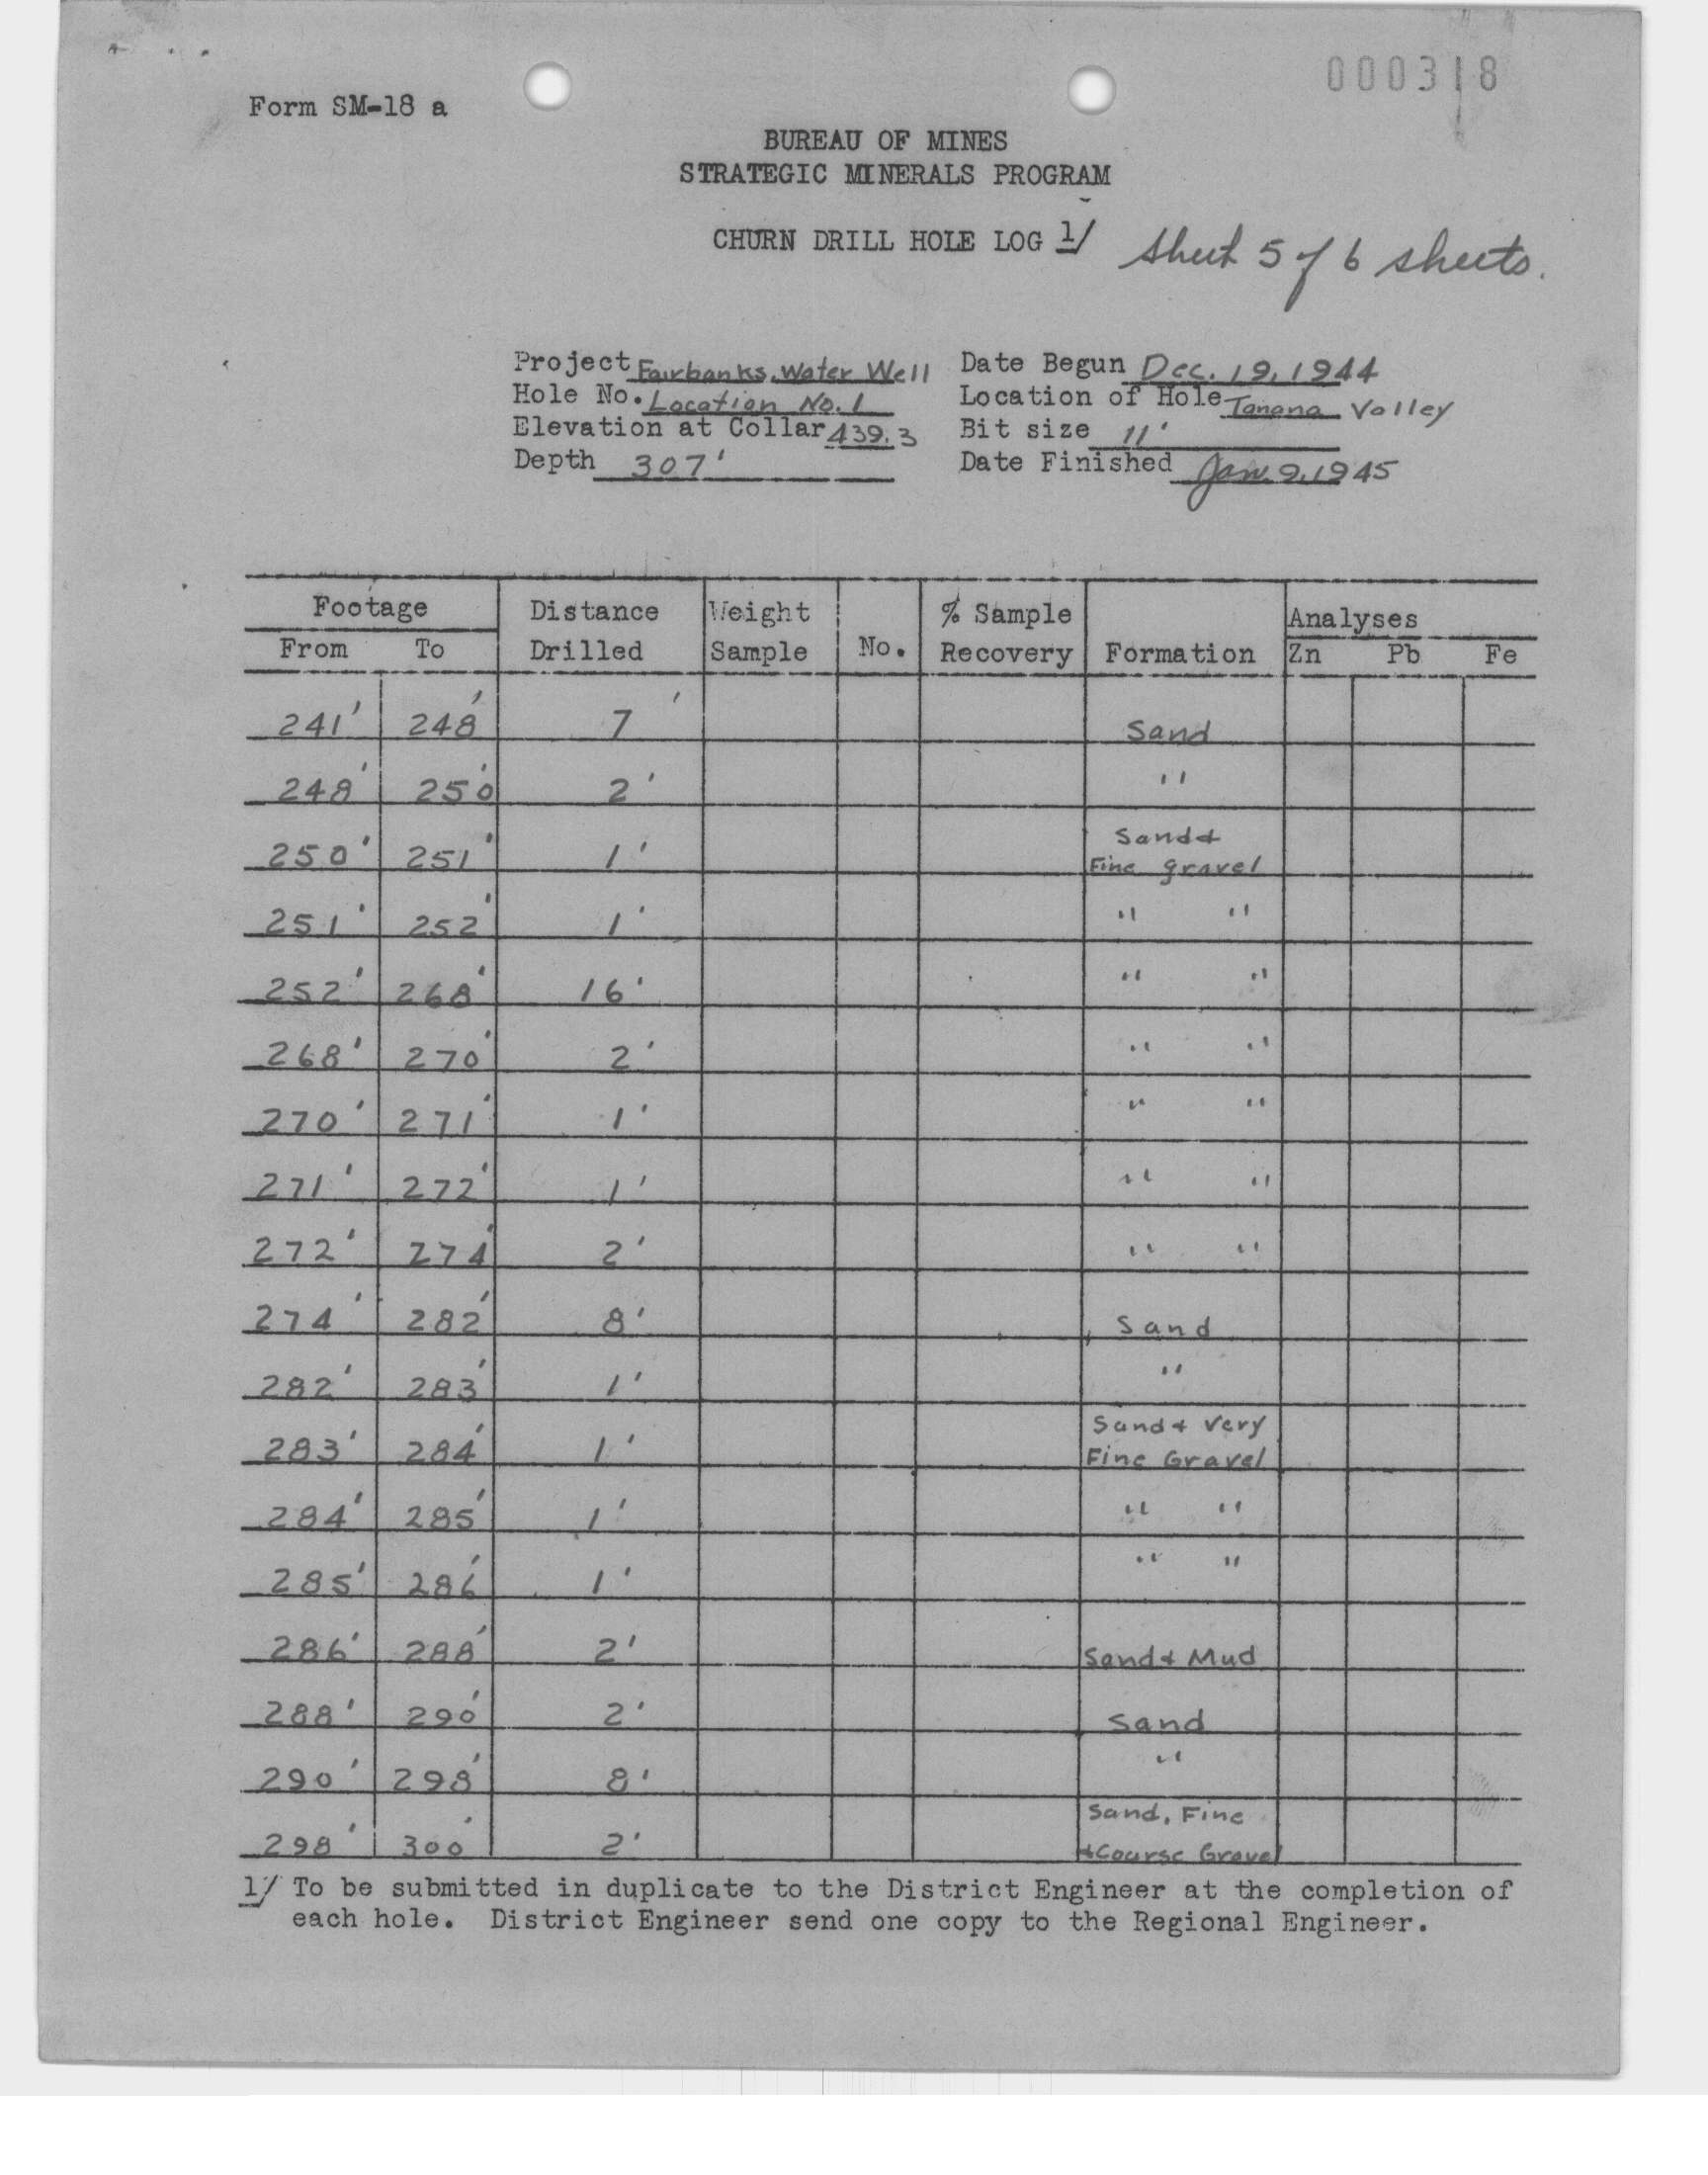 000318
Form SM-18 a
BUREAU OF MINES
STRATEGIC MINERALS PROGRAM
CHURN DRILL HOLE LOG 1/ Sheet 5 of 6 sheets.
Project Fairbanks, Water Well Date Begun Dec. 19, 1944
Hole No. Location No. 1 Location of Hole Tanana Valley
Elevation at Collar 439.3 Bit size 11'
Depth 307' Date Finished Jan. 9, 1945
Footage Distance Weight % Sample Analyses
From To Drilled Sample No. Recovery Formation Zn Pb Fe
241' 248' 7' Sand
248' 250' 2' "
Sand &
250' 251' 1' Fine gravel
251' 252' 1' " "
252' 268' 16' " "
268' 270' 2' " "
270' 271' 1' " "
271' 272' 1' " "
272' 274' 2' " "
274' 282' 8' Sand
282' 283' 1' "
Sand & Very
283' 284' 1' Fine Gravel
284' 285' 1' " "
285' 286' 1' " "
286' 288' 2' Sand & Mud
288' 290' 2' Sand
290' 298' 8' "
Sand, Fine
298' 300' 2' & Course Gravel
1/ To be submitted in duplicate to the District Engineer at the completion of
each hole. District Engineer send one copy to the Regional Engineer.